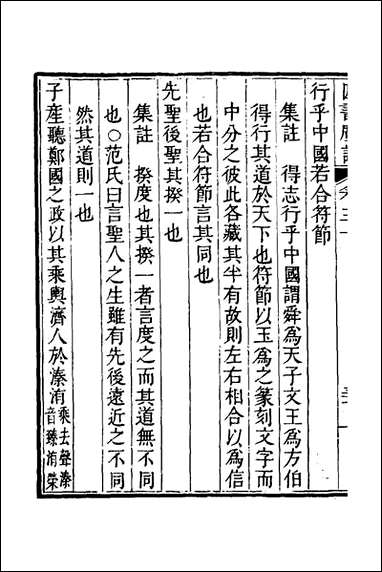 行乎中國若合符節
集註　得志行乎中國謂舜爲天子文王爲方伯
得行其道於天下也符節以玉爲之篆刻文字而
中分之彼此各藏其半有故則左右相合以爲信
也若合符節言其同也
先聖後聖其揆一也
集註　揆度也其揆一者言度之而其道無不同
也○范氏曰言聖人之生雖有先後遠近之不同
然其道則一也
子產聽鄭國之政以其乘輿濟人於溱洧乘去聲溱
音臻洧榮